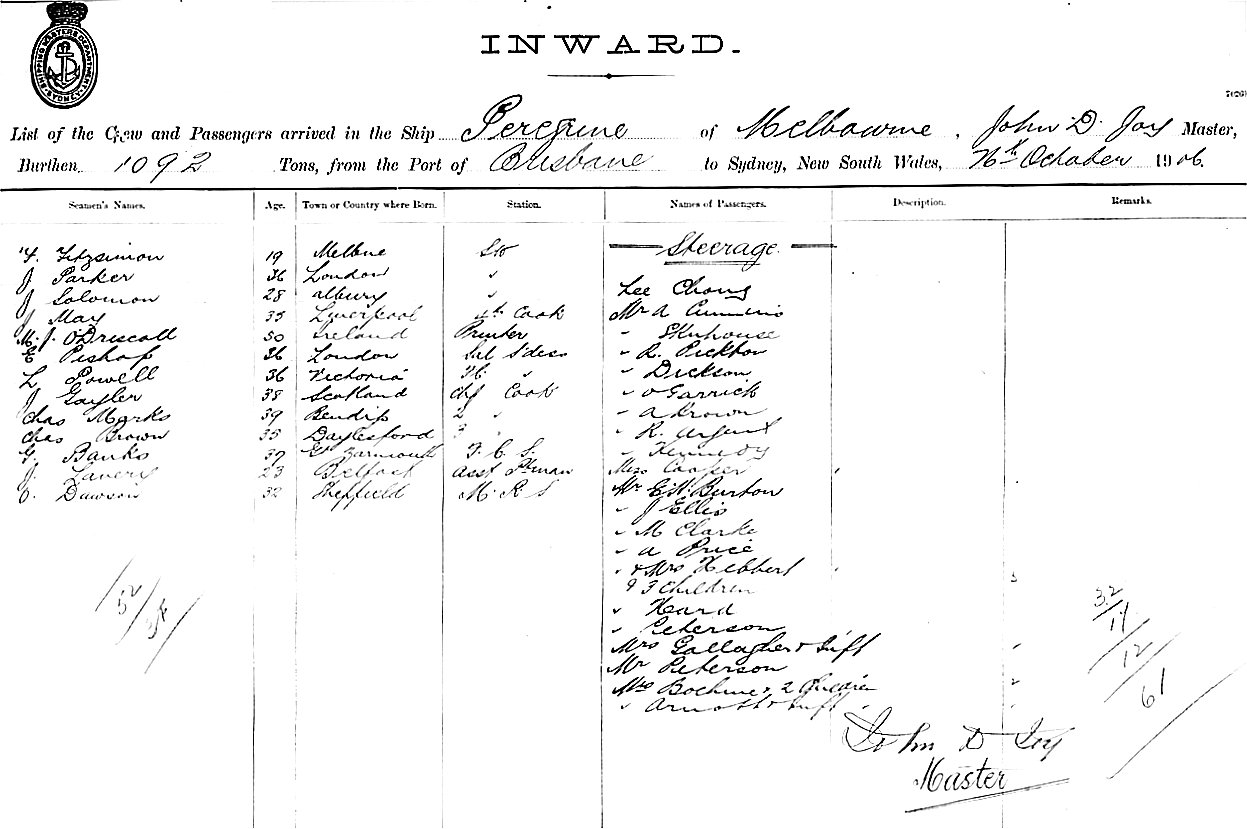 SHIPPING MASTERS DEPARTMENT SYDNEY
INWARD.
List of the Crew and Passengers arrived in the Ship Peregrine of Melbourne, John D. Joy Master,
Burthen 1092 Tons, from the Port of Brisbane to Sydney, New South Wales, October 1906.
Seamen's Names. Age. Town or Country where Born. Station. Names of Passengers. Description. Remarks.
Steerage.
F. Fitzsimon 19 Melbne
J Parker 36 London "
J Solomon 28 albury " Lee Chong
J May 35 Liverpool 4th Cook Mr A Cummins
M. J. O'Driscoll 50 Ireland Printer "
E Pishop 36 London " R.
L Powell 36 Victoria " " Dickson
J Gayler 38 Scotland Chf Cook " Garrick
Chas Marks 39 Bendigo 2 " " a Brown
Chas Brown 35 Daylesford 3 " " R. Argent
G. Banks 37 Gt Yarmouth F. C. S. " Kennedy
J. Lavery 23 Belfast Asst Cooper
C. Dawson 32 Sheffield M. R. S Mr E. Burton
" J Ellis
" M Clarke
" a Price
" & Mrs Hebbert
& 3 Children 3
" Hard
" Peterson
Mrs Gallagher &
Mr Peterson
Mrs Boehme & 2 Children 2
" Arnott &
52
32
12
61
John D Joy
Master